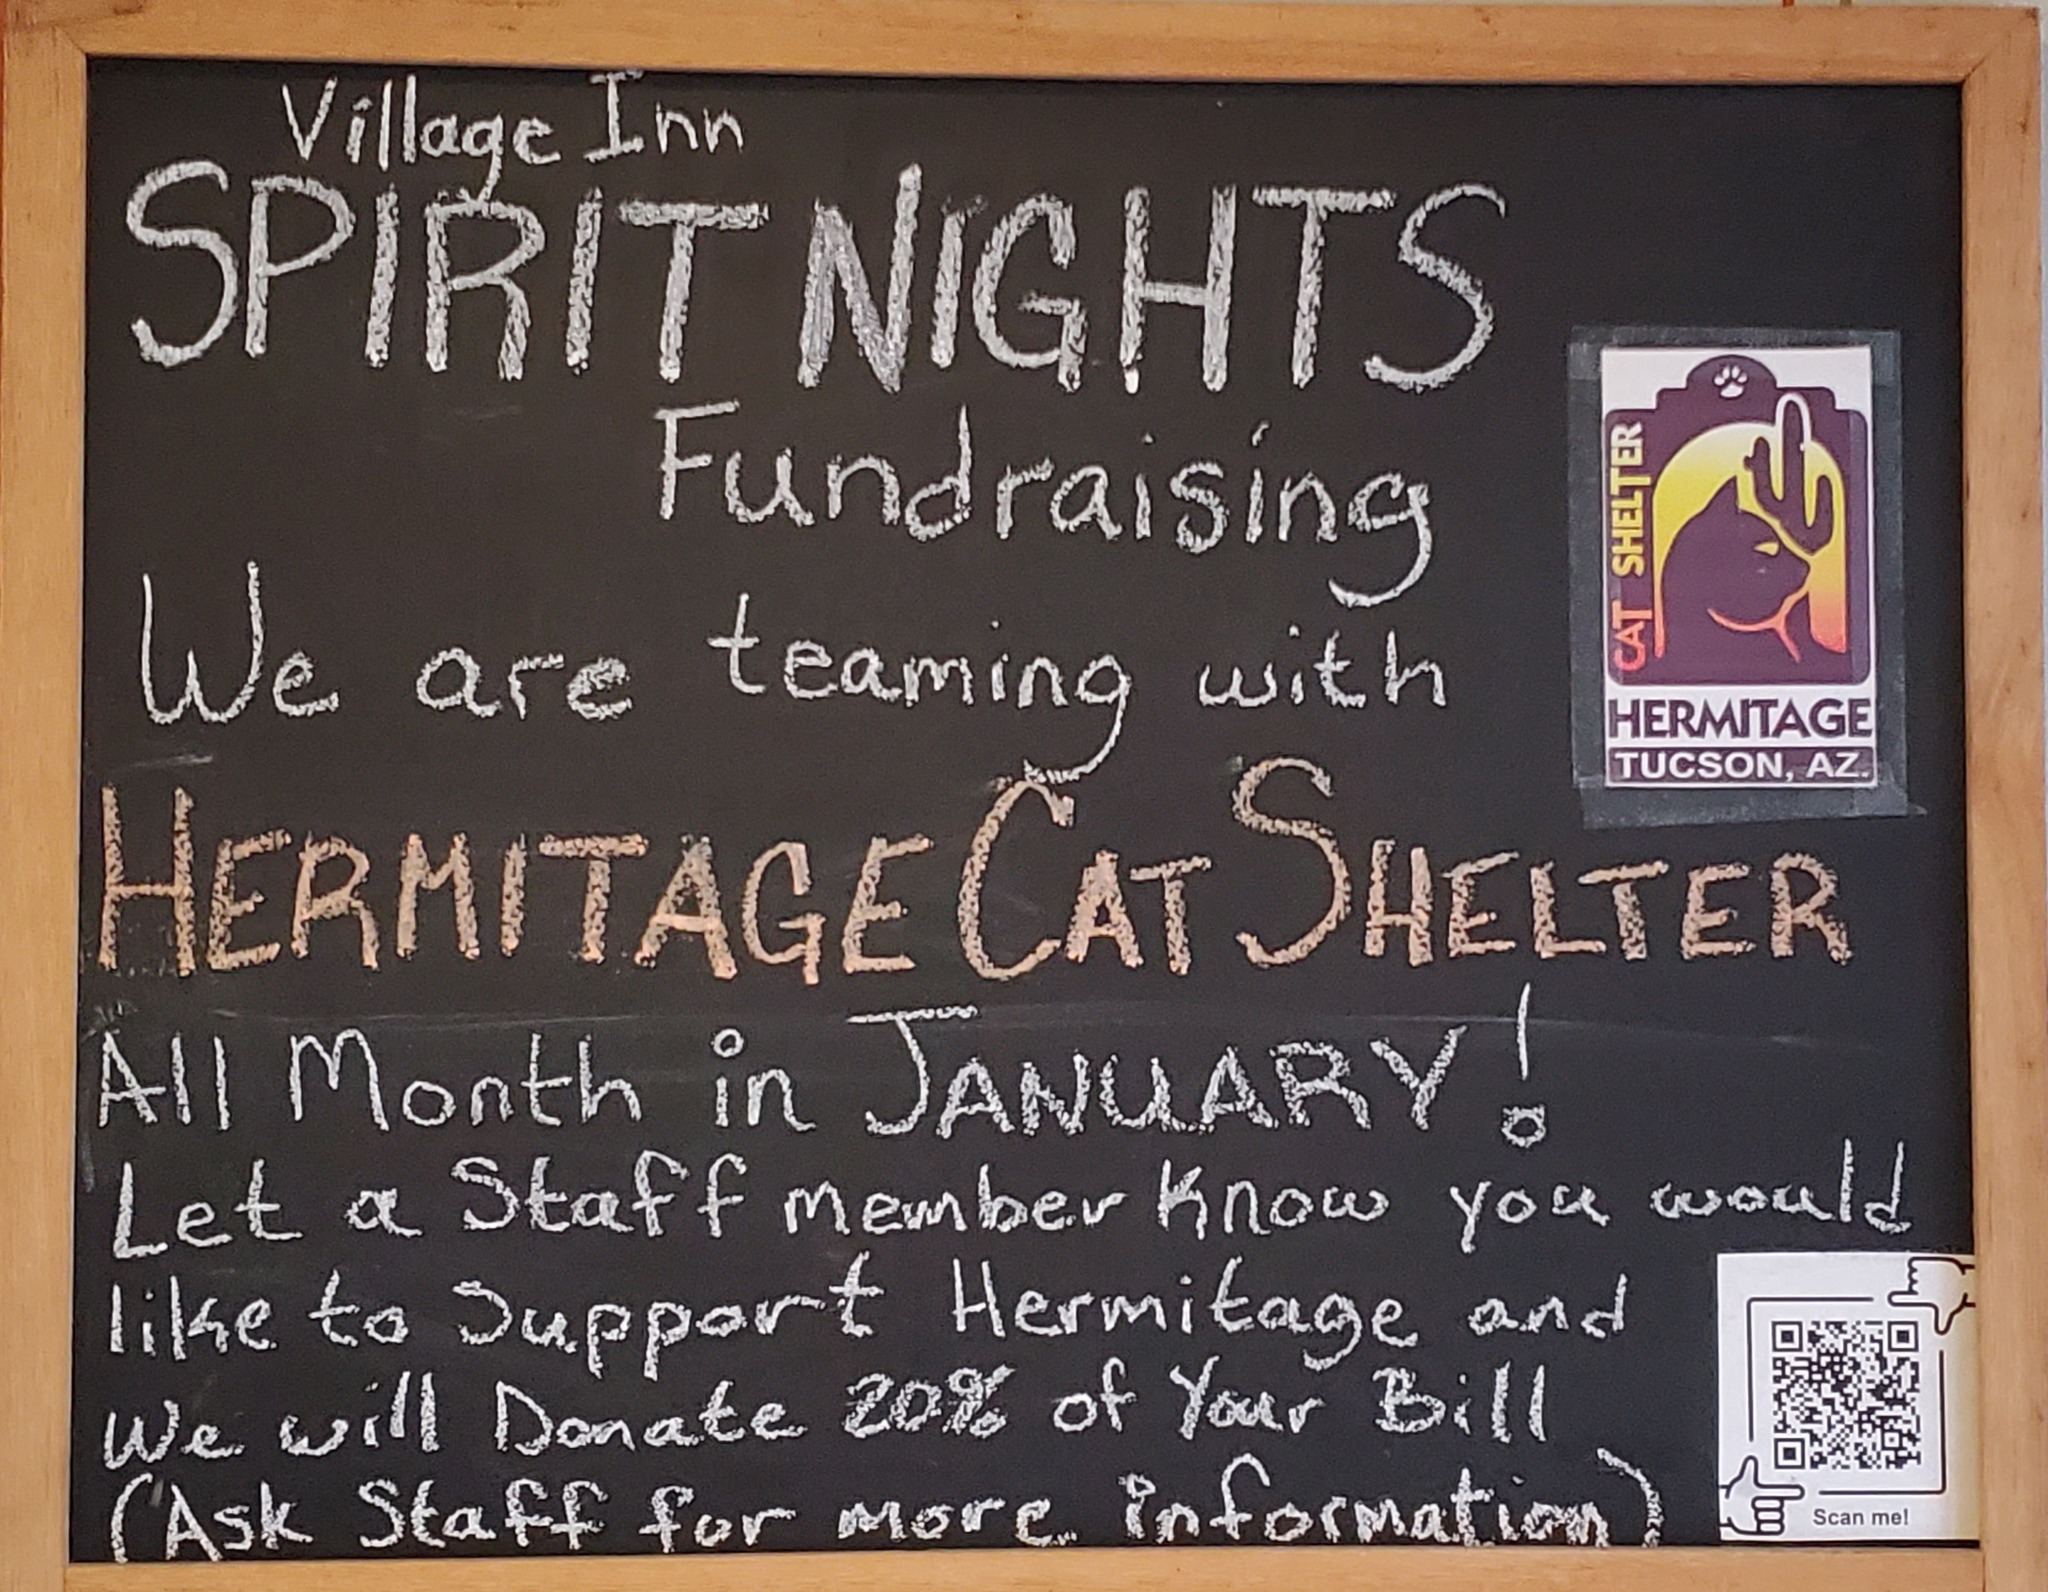 Village Inn
SPIRIT NIGHTS
Fundraising
We are teaming with
HERMITAGE CAT SHELTER
All Month in JANUARY!
Let a Staff member Know you would
like to Support Hermitage and
We will Donate 20% of Your Bill
(Ask Staff for more information)
CAT SHELTER
HERMITAGE
TUCSON, AZ.
Scan me!